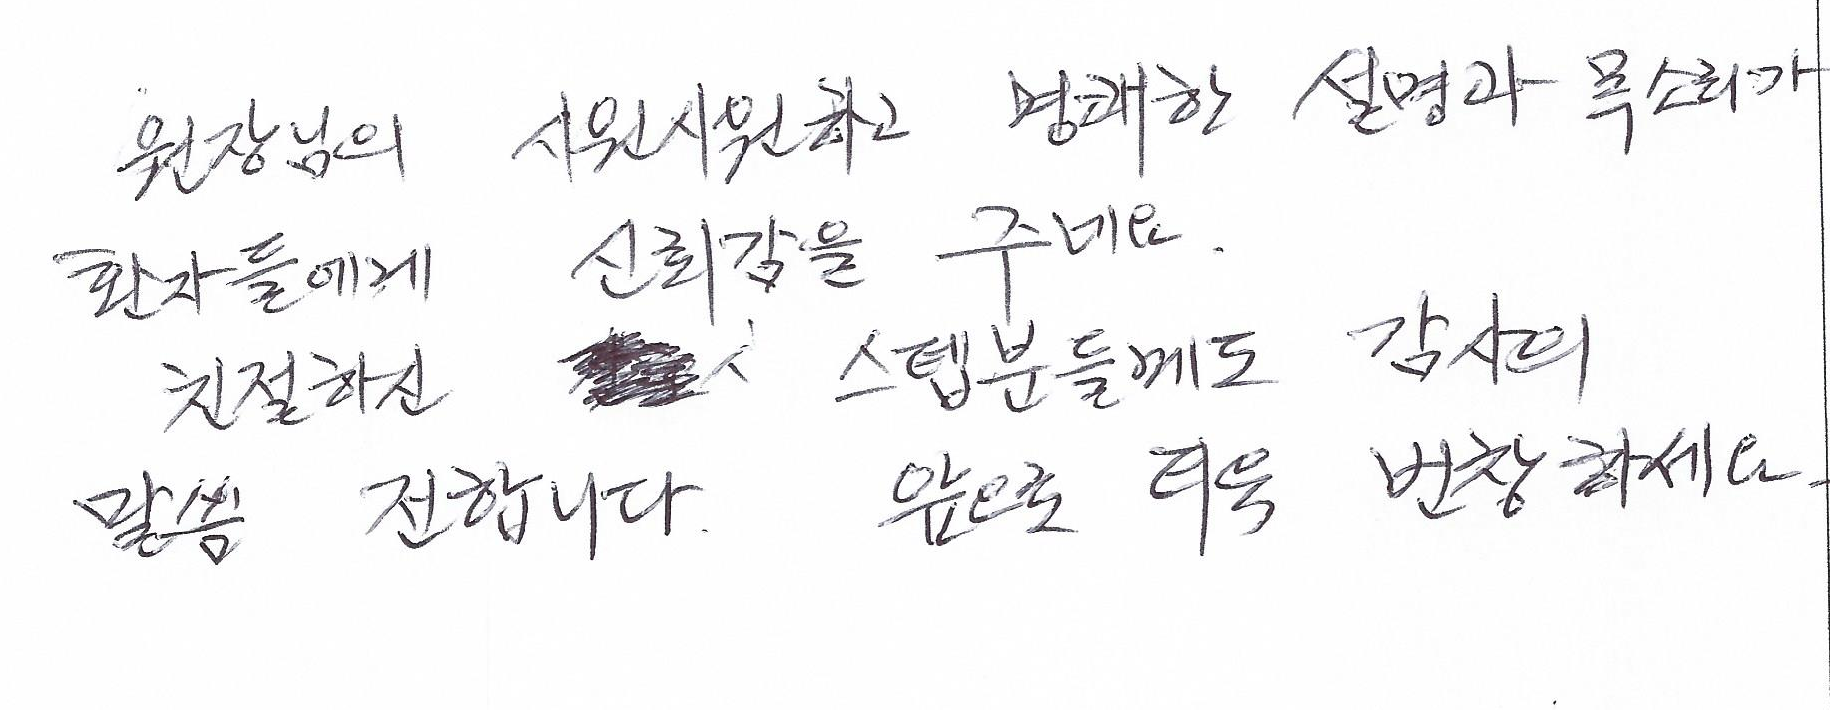 원장님의 시원시원하고 명쾌한 설명과 목소리가
환자들에게 신뢰감을 주네요.
친절하신 스텝분들께도 감사의
말씀 전합니다. 앞으로 더욱 번창하세요.